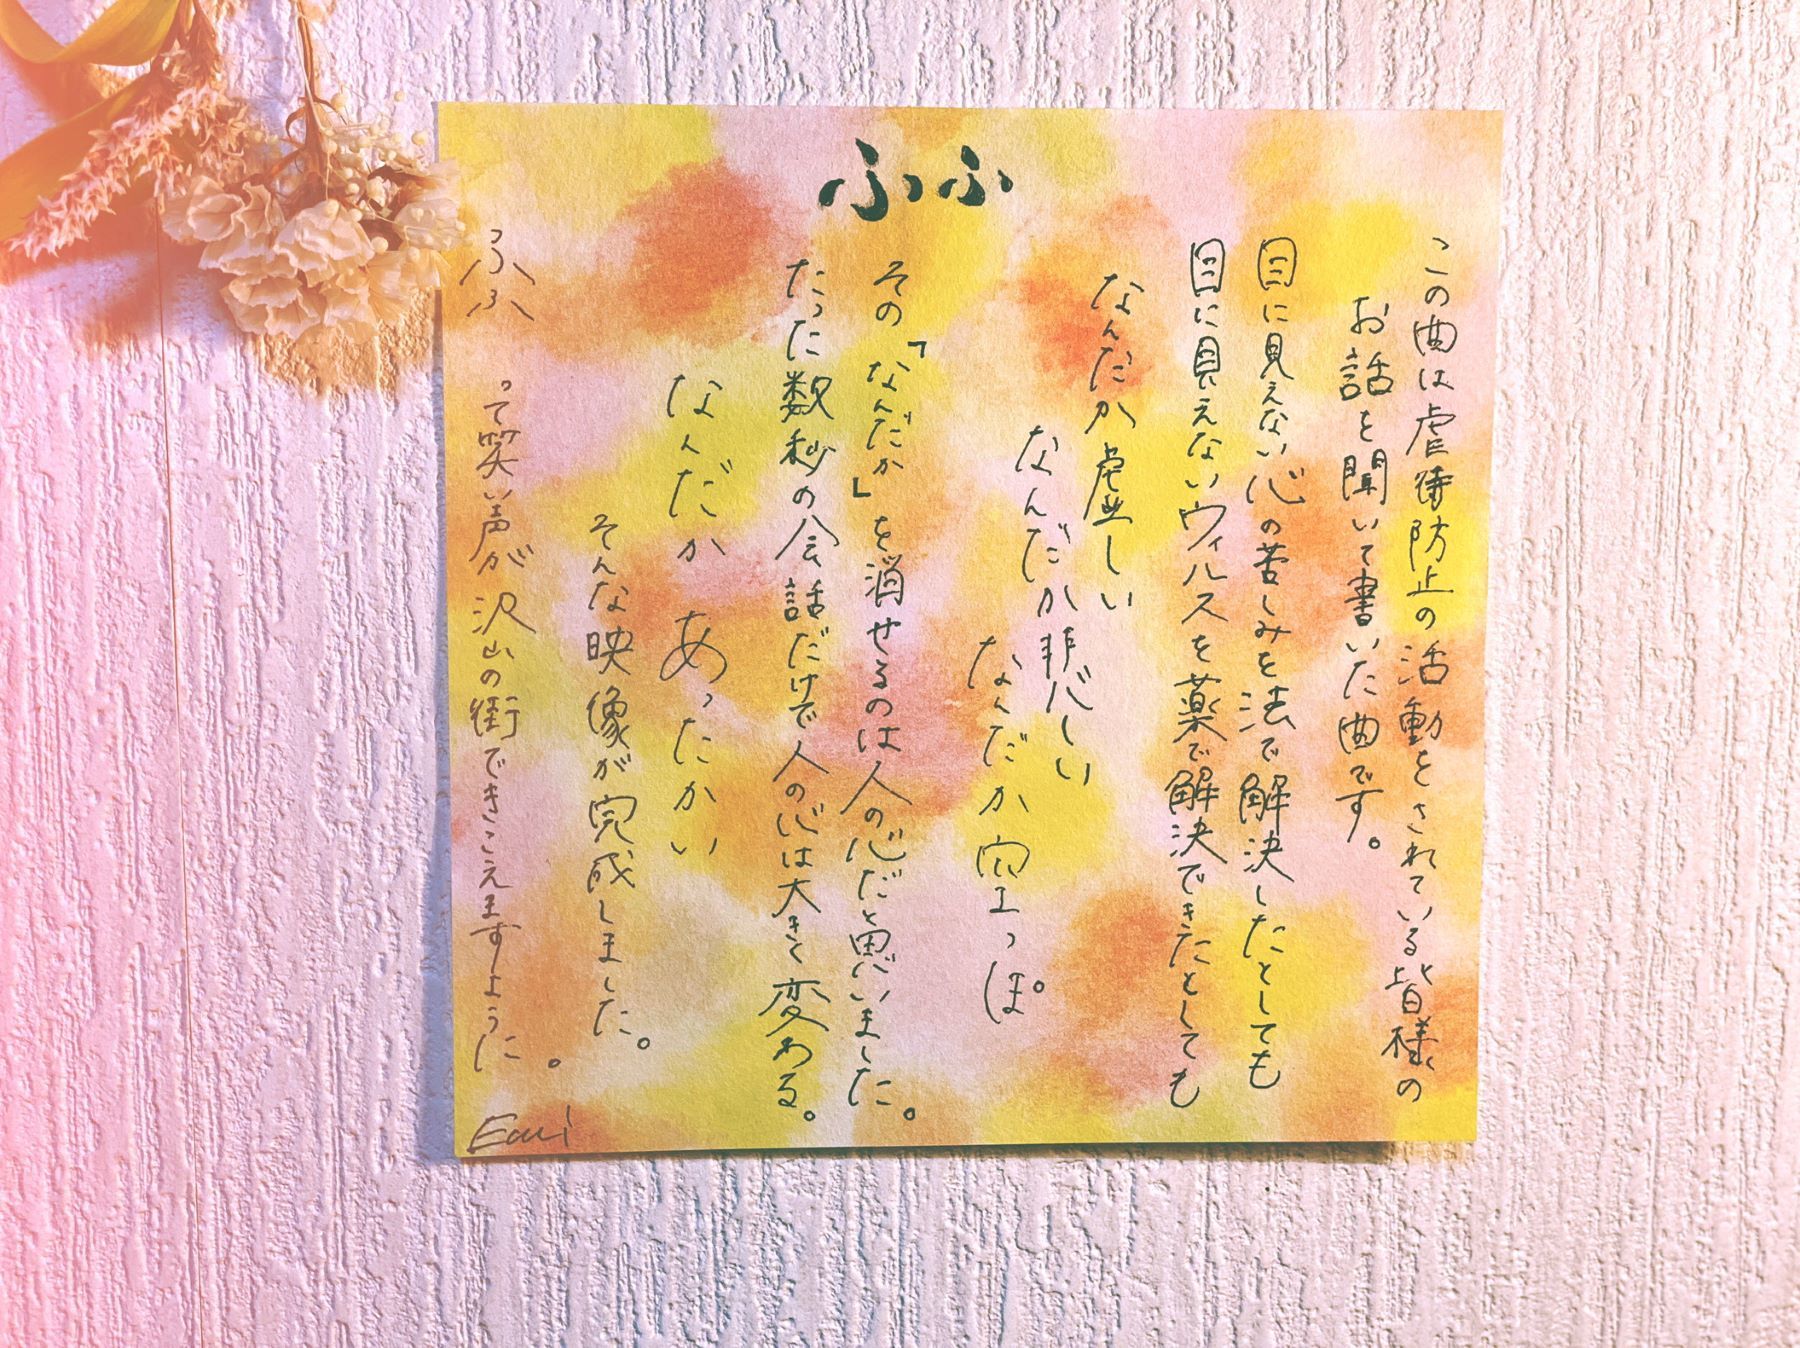 ふふ
この曲は虐待防止の活動をされている皆様の
お話を聞いて書いた曲です。
目に見えない心の苦しみを法で解決したとしても
目に見えないウィルスを薬で解決できたとしても
なんだか虚しい
なんだか悲しい
なんだか空っぽ。
その「なんだか」を消せるのは人の心だと思いました。
たった数秒の会話だけで人の心は大きく変わる。
なんだか あったかい
そんな映像が完成しました。
ふふ って笑い声が沢山の街できこえますように。
Emi